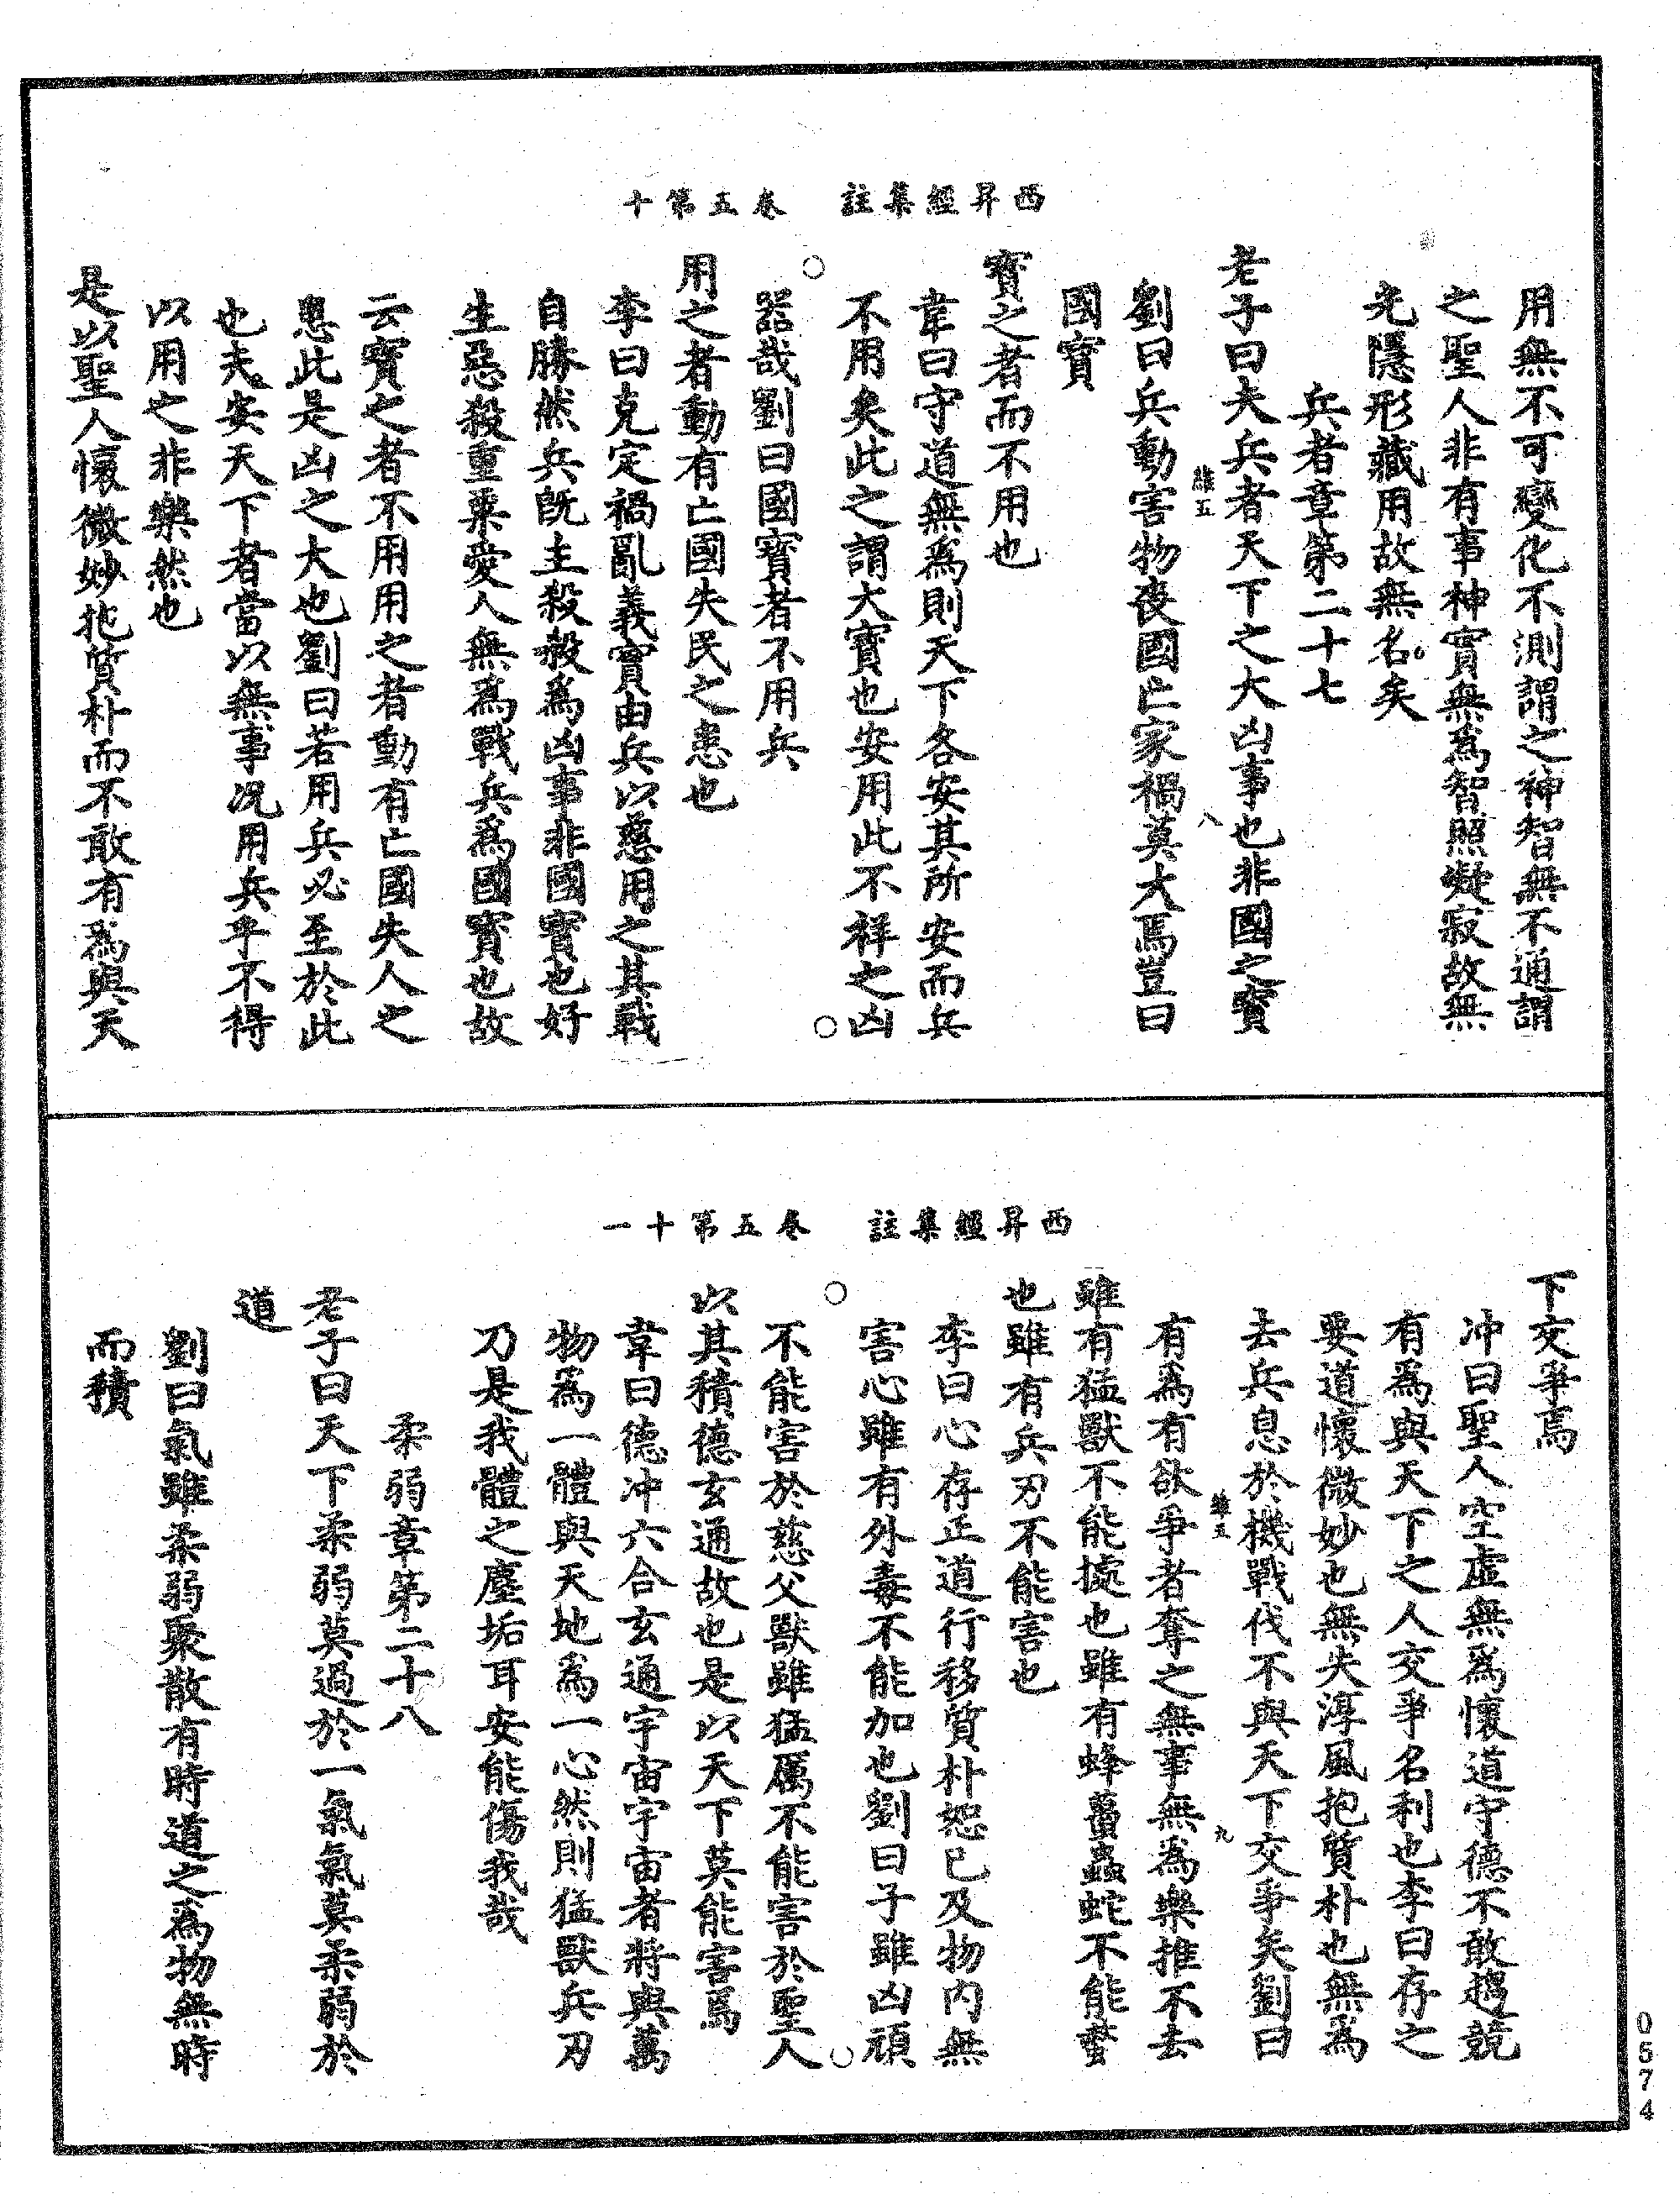 西昇經集註　卷五第十
用無不可變化不測謂之神智無不通謂
之聖人非有事神實無為智照凝寂故無
光隱形藏用故無名矣
兵者章第二十七
老子曰夫兵者天下之大凶事也非國之寶
維五
八
劉曰兵動害物喪國亡家禍莫大焉豈曰
國寶
寶之者而不用也
韋曰守道無為則天下各安其所安而兵
不用矣此之謂大寶也安用此不祥之凶
器哉劉曰國寶者不用兵
用之者動有亡國失民之患也
李曰克定禍亂義實由兵以慈用之其戰
自勝然兵既主殺殺為凶事非國寶也好
生惡殺重粟愛人無為戰兵為國寶也故
云寶之者不用用之者動有亡國失人之
患此是凶之大也劉曰若用兵必至於此
也夫安天下者當以無事況用兵乎不得
以用之非樂然也
是以聖人懷微妙抱質朴而不敢有為與天
西昇經集註　卷五第十一
下交爭焉
冲曰聖人空虛無為懷道守德不敢趨競
有為與天下之人交爭名利也李曰存之
要道懷微妙也無失淳風抱質朴也無為
去兵息於機戰伐不與天下交爭矣劉曰
維五
九
有為有欲爭者奪之無事無為樂推不去
雖有猛獸不能據也雖有蜂蠆蟲蛇不能螫
也雖有兵刃不能害也
李曰心存正道行移質朴恕已及物内無
害心雖有外毒不能加也劉曰子雖凶頑
不能害於慈父獸雖猛厲不能害於聖人
以其積德玄通故也是以天下莫能害焉
韋曰德冲六合玄通宇宙宇宙者將與萬
物為一體與天地為一心然則猛獸兵刃
乃是我體之塵垢耳安能傷我哉
柔弱章第二十八
老子曰天下柔弱莫過於一氣氣莫柔弱於
道
劉曰氣雖柔弱聚散有時道之為物無時
而積
0574